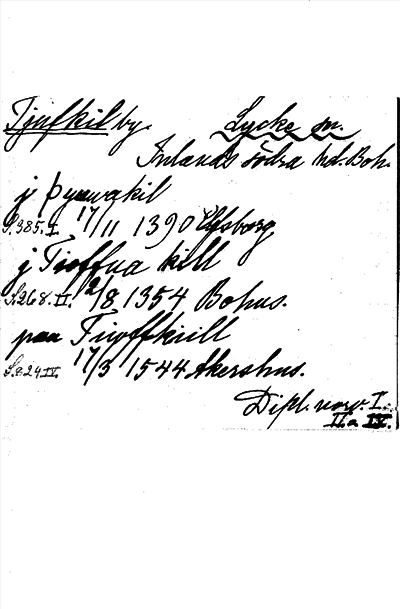 Tjufkil by. Lycke sn.
Inlands Södra hd. Boh.
j þyuuakil
S.385.I. 17/11 1390 Elfsborg
j Tioffua kill
S.268.II. 2/8 1354 Bohus.
paa Tiuoffkiill
S.824 IV. 17/3 1544 Akershus.
Dipl. norv. I.
II a IV.